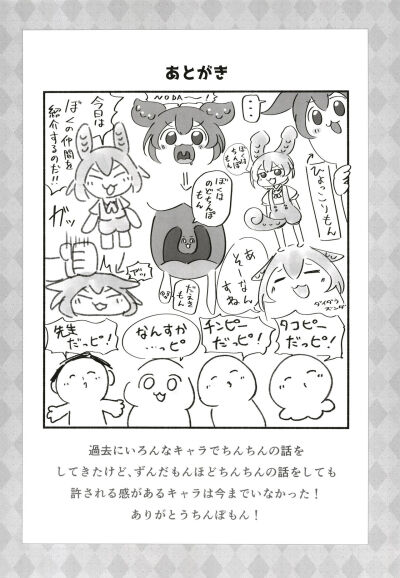 あとがき
今日は
ぼくの仲間を
紹介するのだ!!
NODA〜!
ぼくは
のどちんぽ
もん
ぼくは
ちんぽ
もん
…
ひょっこりもん
ガッ
だえき
もん
あ
そーなん
すね
ダイダラ
ズンダ
先生
だっピ!
なんすか
…っピ
チンピー
だっピ!
タコピー
だっピ!
過去にいろんなキャラでちんちんの話を
してきたけど、ずんだもんほどちんちんの話をしても
許される感があるキャラは今までいなかった!
ありがとうちんぽもん!